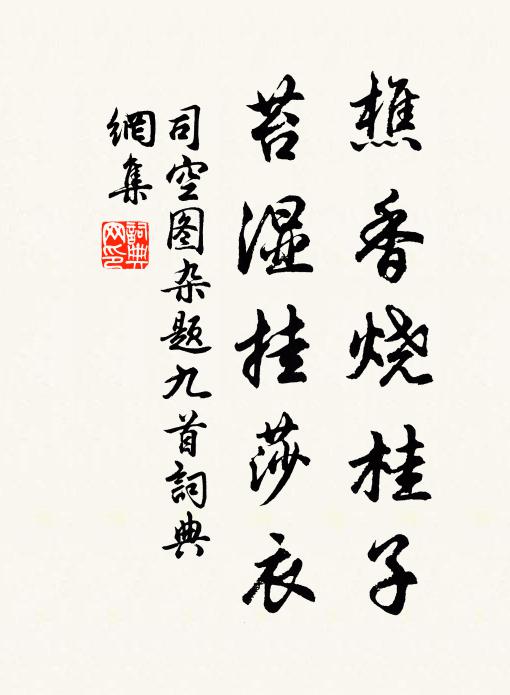 樵香烧桂子
苔湿挂莎衣
司空图杂题九首詞典
網集
詞典
网印